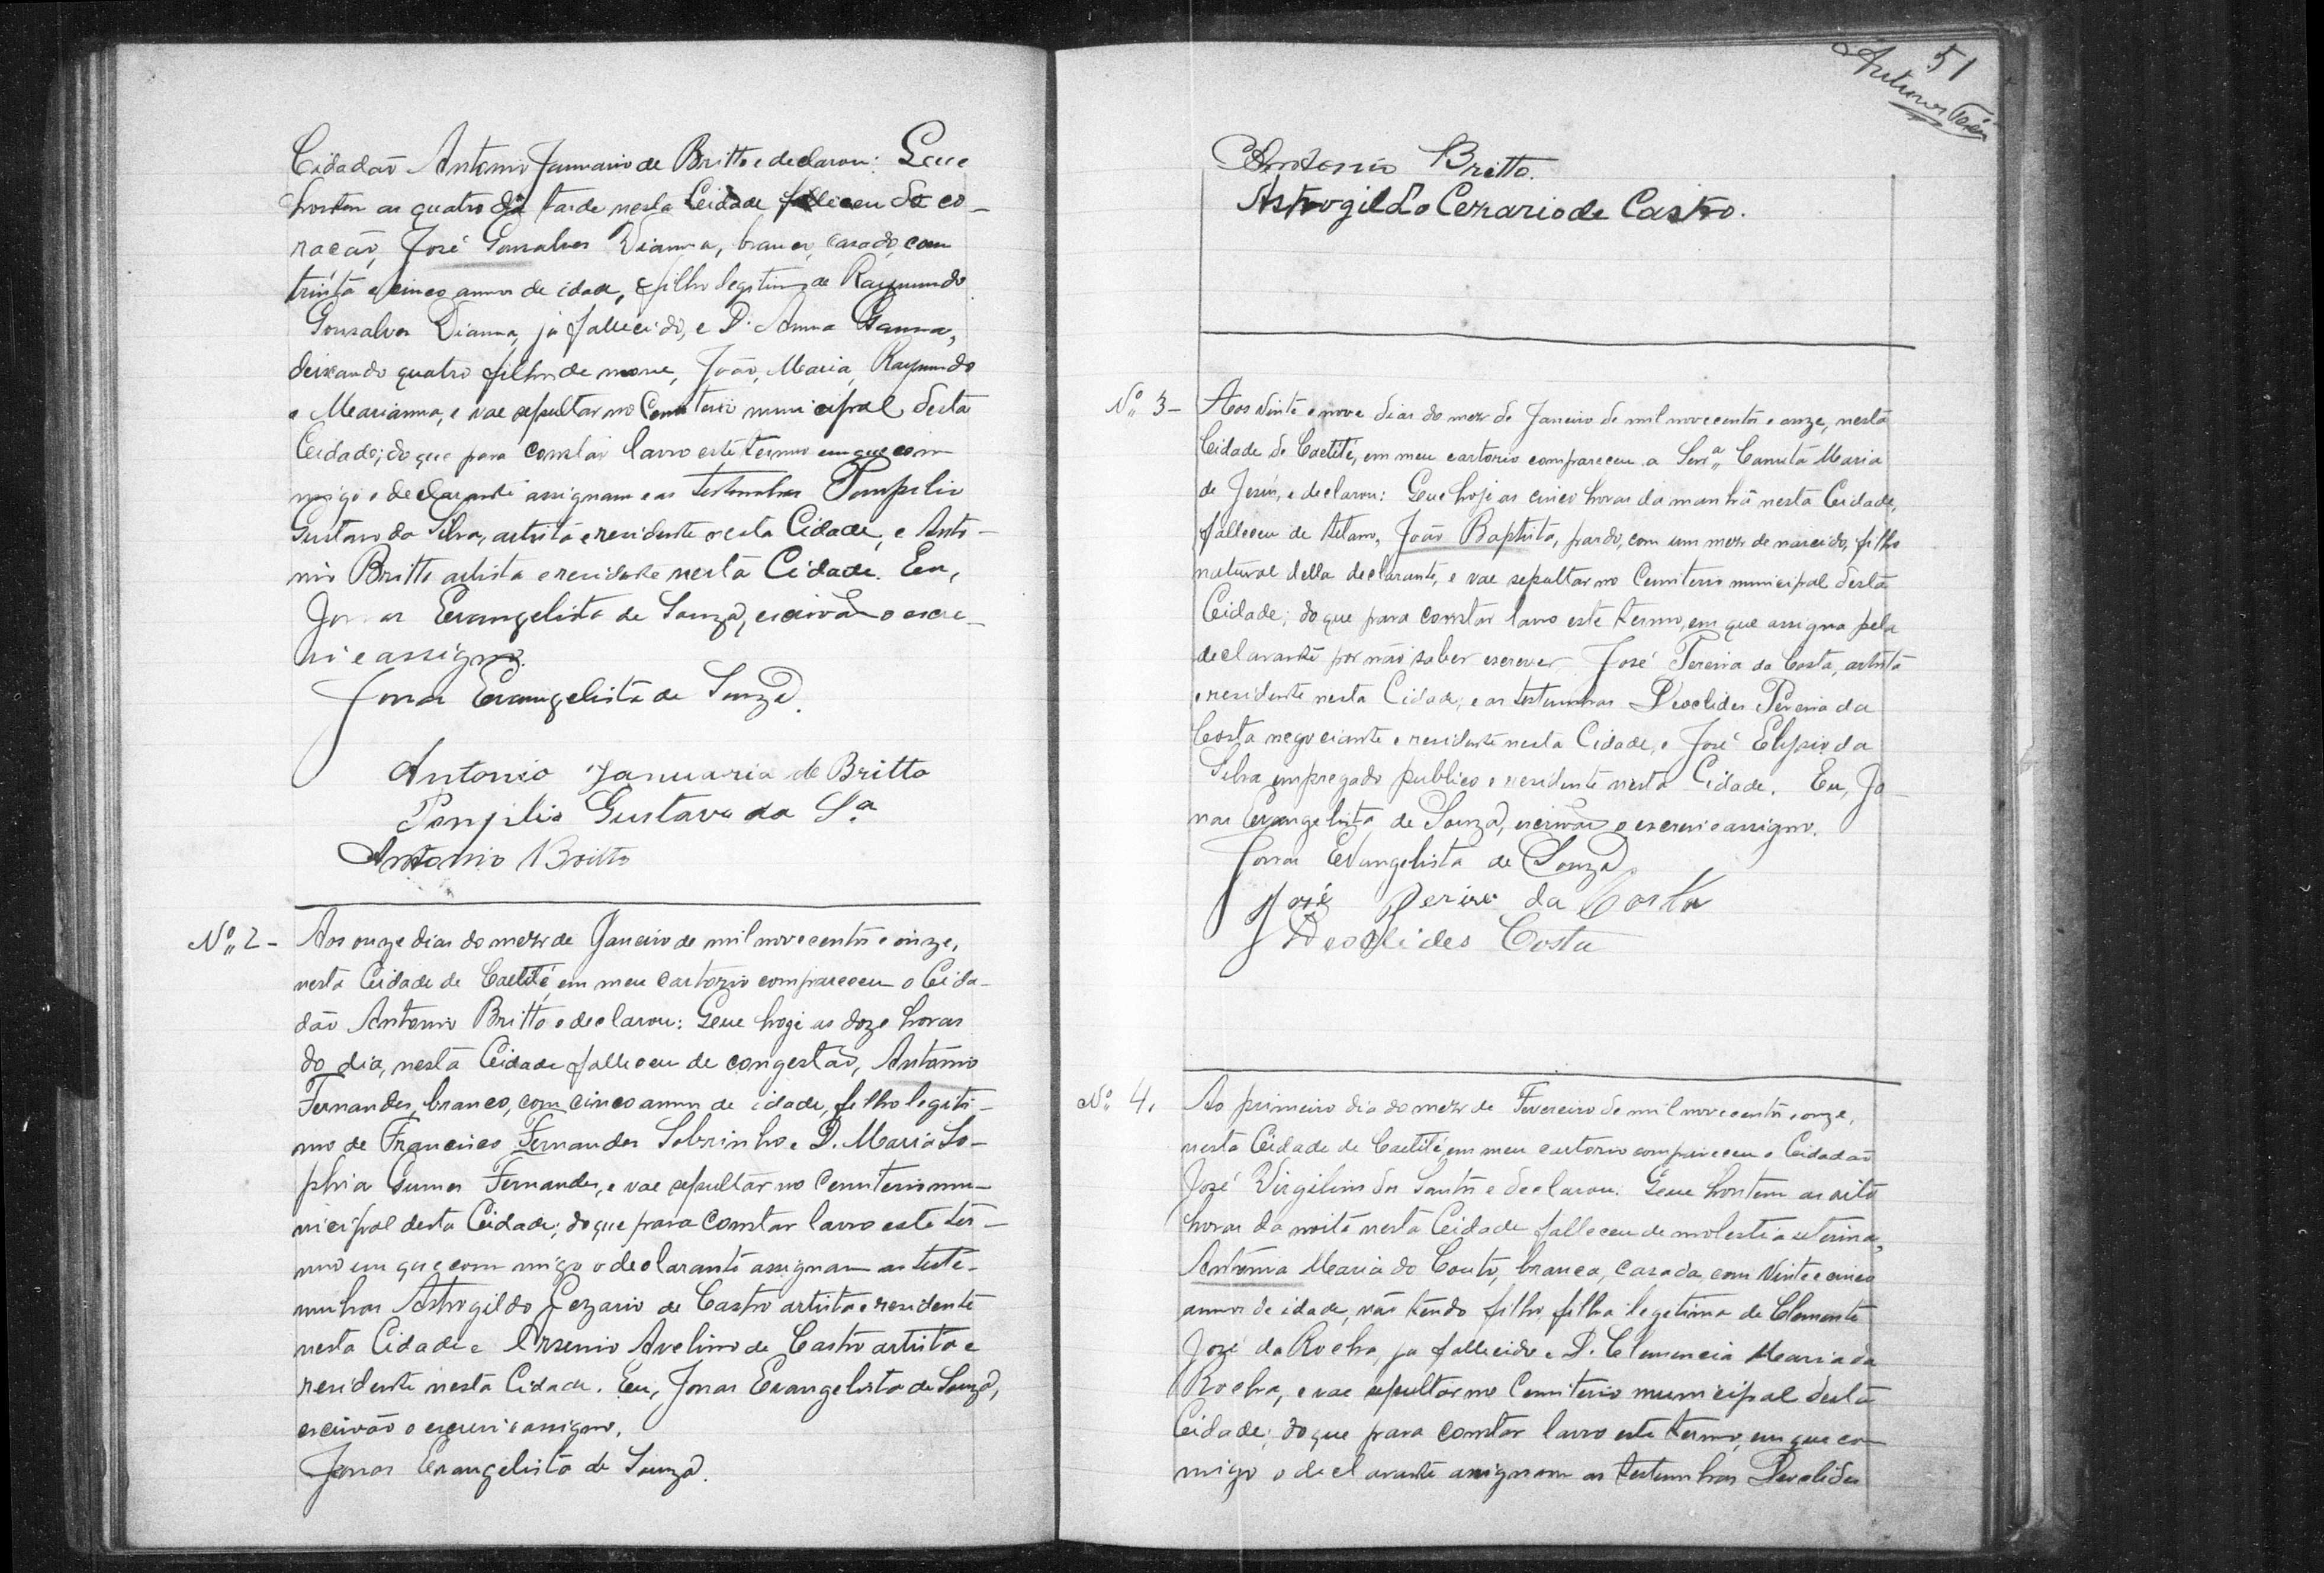 Cidadão Antonio Januario de Britto e declarou: Que
hontem as quatro da tarde nesta Cidade falleceu do co-
ração, José Gonsalves Vianna, branco, casado, com
trinta e cinco annos de idade, filho legitimo de Raymundo
Gonsalves Vianna, já fallecido, e D. Anna
deixando quatro filhos de nome, João, Maria, Raymundo
e Marianna, e vae sepultar no Cemiterio municipal desta
Cidade; do que para constar lavro este termo em que com
migo o declarante assignam e as testemunhas Pompilio
Gustavo da Silva, artista e residente nesta Cidade, e Anto-
nio Britto artista e residente nesta Cidade. Eu,
Jonas Evangelista de Souza, escrivão o escre-
vi e assigno.
Jonas Evangelista de Souza.
Antonio Januario de Britto
Pompilio Gustavo da Sª
Antonio Britto
Nº 2- Aos onze dias do mez de Janeiro de mil novecentos e onze,
nesta Cidade de Caetité, em meu cartorio compareceu o Cida-
dão Antonio Britto e declarou: Que hoje as doze horas
do dia, nesta Cidade falleceu de congestão, Antonio
Fernandes, branco, com cinco annos de idade, filho legiti-
mo de Francisco Fernandes Sobrinho e D. Maria So-
phia Gumes Fernandes, e vae sepultar no Cemiterio mu-
nicipal desta Cidade; do que para constar lavro este ter-
mo em que com migo o declarante assignam as teste-
munhas Astrogildo Cezario de Castro artista e residente
nesta Cidade e Arsenio Avelino de Castro artista e
residente nesta Cidade. Eu, Jonas Evangelista de Souza,
escrivão o escrevi e assigno.
Jonas Evangelista de Souza.
51
Antonio Britto.
Astrogildo Cezario de Castro.
Nº 3- Aos vinte e nove dias do mez de Janeiro de mil novecentos e onze, nesta
Cidade de Caetité, em meu cartorio compareceu a Senrª Canuta Maria
de Jesus, e declarou: Que hoje as cinco horas da manhã nesta Cidade,
falleceu de tetano, João Baptista, pardo, com um mez de nascido, filho
natural della declarante, e vae sepultar no Cemiterio municipal desta
Cidade; do que para constar lavro este termo, em que assigna pela
declarante por não saber escrever José Pereira da Costa, artista
e residente nesta Cidade, e as testemunhas Deoclides Pereira da
Costa negociante e residente nesta Cidade, e José Elysio da
Silva empregado publico e residente nesta Cidade. Eu, Jo-
nas Evangelista de Souza, escrivão o escrevi e assigno.
Jonas Evangelista de Souza
José Pereira da Costa
Deoclides Costa
Nº 4. Ao primeiro dia do mez de Fevereiro de mil novecentos e onze,
nesta Cidade de Caetité, em meu cartorio compareceu o Cidadão
José Virgilino dos Santos e declarou: Que hontem as oito
horas da noite nesta Cidade falleceu de molestia uterina,
Antonia Maria do Couto, branca, casada, com vinte e cinco
annos de idade, não tendo filho, filha legitima de Clemente
José da Rocha, ja fallecido e D. Clemencia Maria da
Rocha, e vae sepultar no Cemiterio municipal desta
Cidade; do que para constar lavro este termo, em que co-
migo o declarante assignam as testemunhas Deoclides